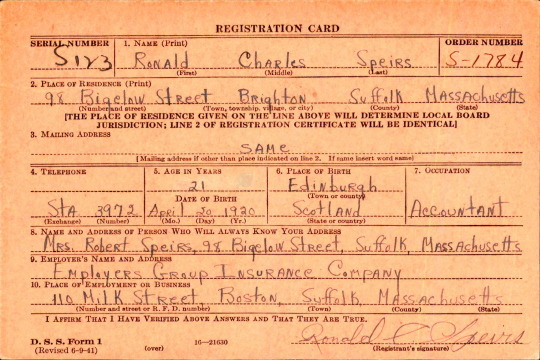 REGISTRATION CARD
SERIAL NUMBER 1. NAME (Print) ORDER NUMBER
S123 RONALD CHARLES SPEIRS S-1784
(First) (Middle) (Last)
2. PLACE OF RESIDENCE (Print)
98 Bigelow Street Brighton Suffolk Massachusetts
(Number and street) (Town, township, village, or city) (County) (State)
[THE PLACE OF RESIDENCE GIVEN ON THE LINE ABOVE WILL DETERMINE LOCAL BOARD
JURISDICTION; LINE 2 OF REGISTRATION CERTIFICATE WILL BE IDENTICAL]
3. MAILING ADDRESS
SAME
[Mailing address if other than place indicated on line 2. If same insert word same]
4. TELEPHONE 5. AGE IN YEARS 6. PLACE OF BIRTH 7. OCCUPATION
21 Edinburgh
DATE OF BIRTH (Town or county)
STA 3972 April 20 1920 Scotland Accountant
(Exchange) (Number) (Mo.) (Day) (Yr.) (State or country)
8. NAME AND ADDRESS OF PERSON WHO WILL ALWAYS KNOW YOUR ADDRESS
Mrs. Robert Speirs, 98 Bigelow Street, Suffolk, Massachusetts
9. EMPLOYER'S NAME AND ADDRESS
Employers Group Insurance Company
10. PLACE OF EMPLOYMENT OR BUSINESS
110 Milk Street, Boston, Suffolk Massachusetts
(Number and street or R. F. D. number) (Town) (County) (State)
I AFFIRM THAT I HAVE VERIFIED ABOVE ANSWERS AND THAT THEY ARE TRUE.
D. S. S. Form 1 Ronald C Speirs
(Revised 6-9-41) (over) 16—21630 (Registrant's signature)